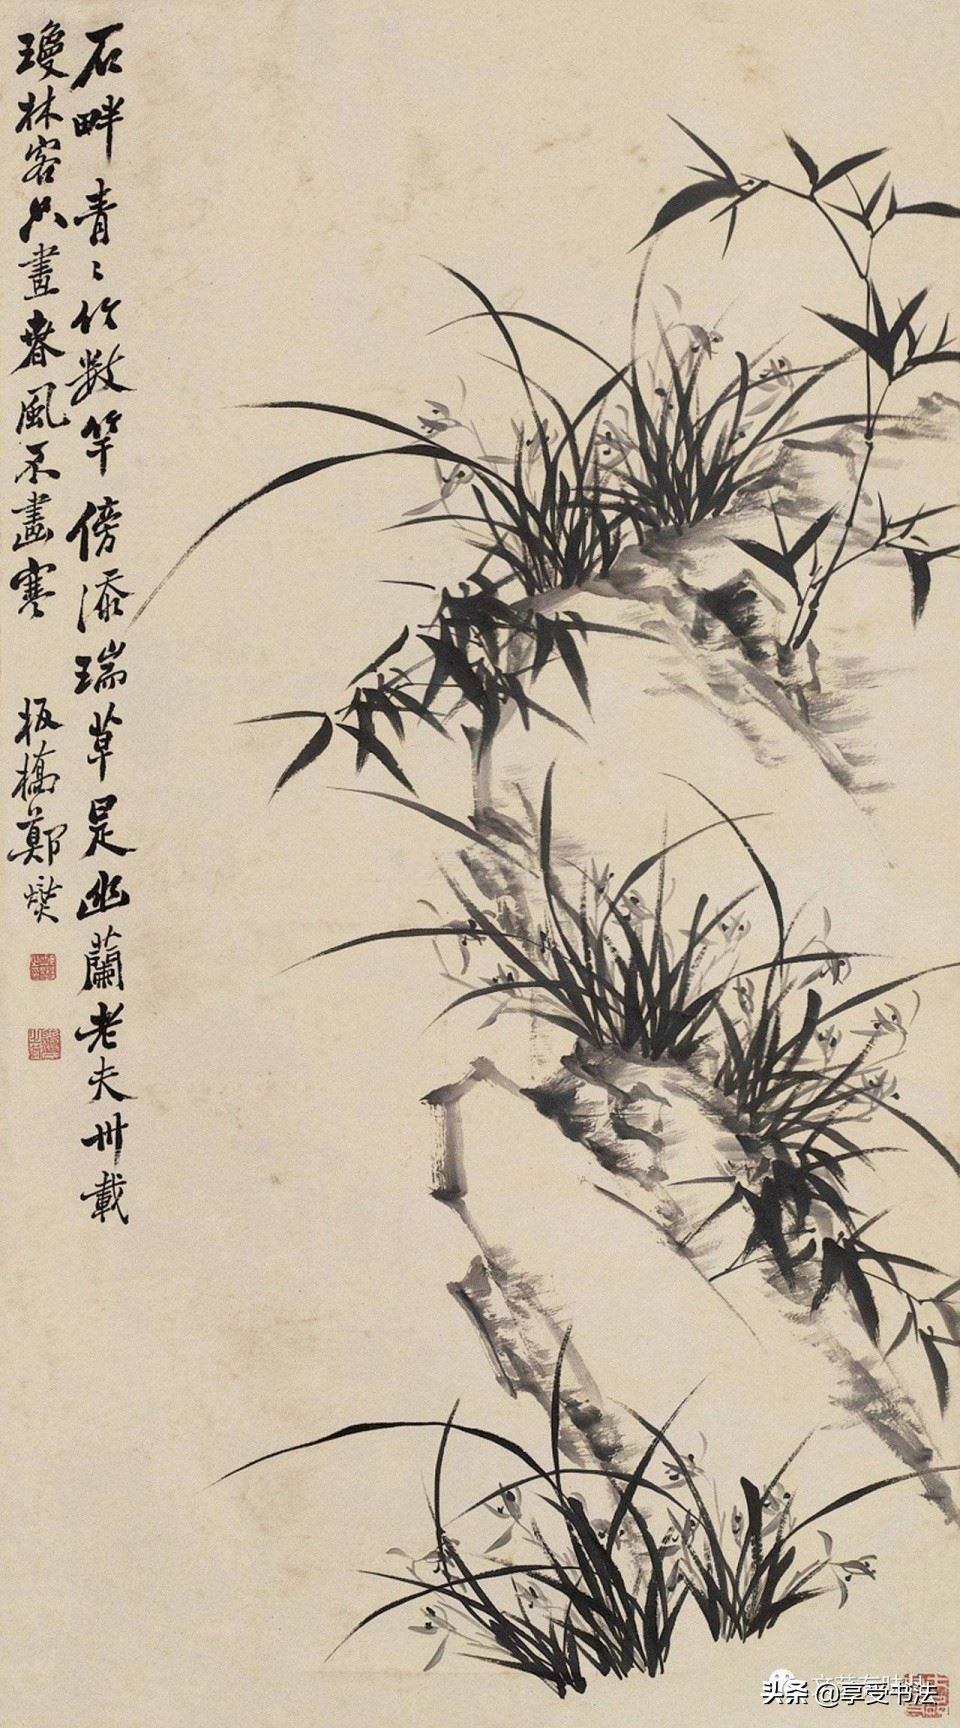 石畔青〻竹数竿傍添瑞草是幽蘭老夫卅載
瓊林客只畫春風不畫寒
板橋鄭燮
头条 @享受书法